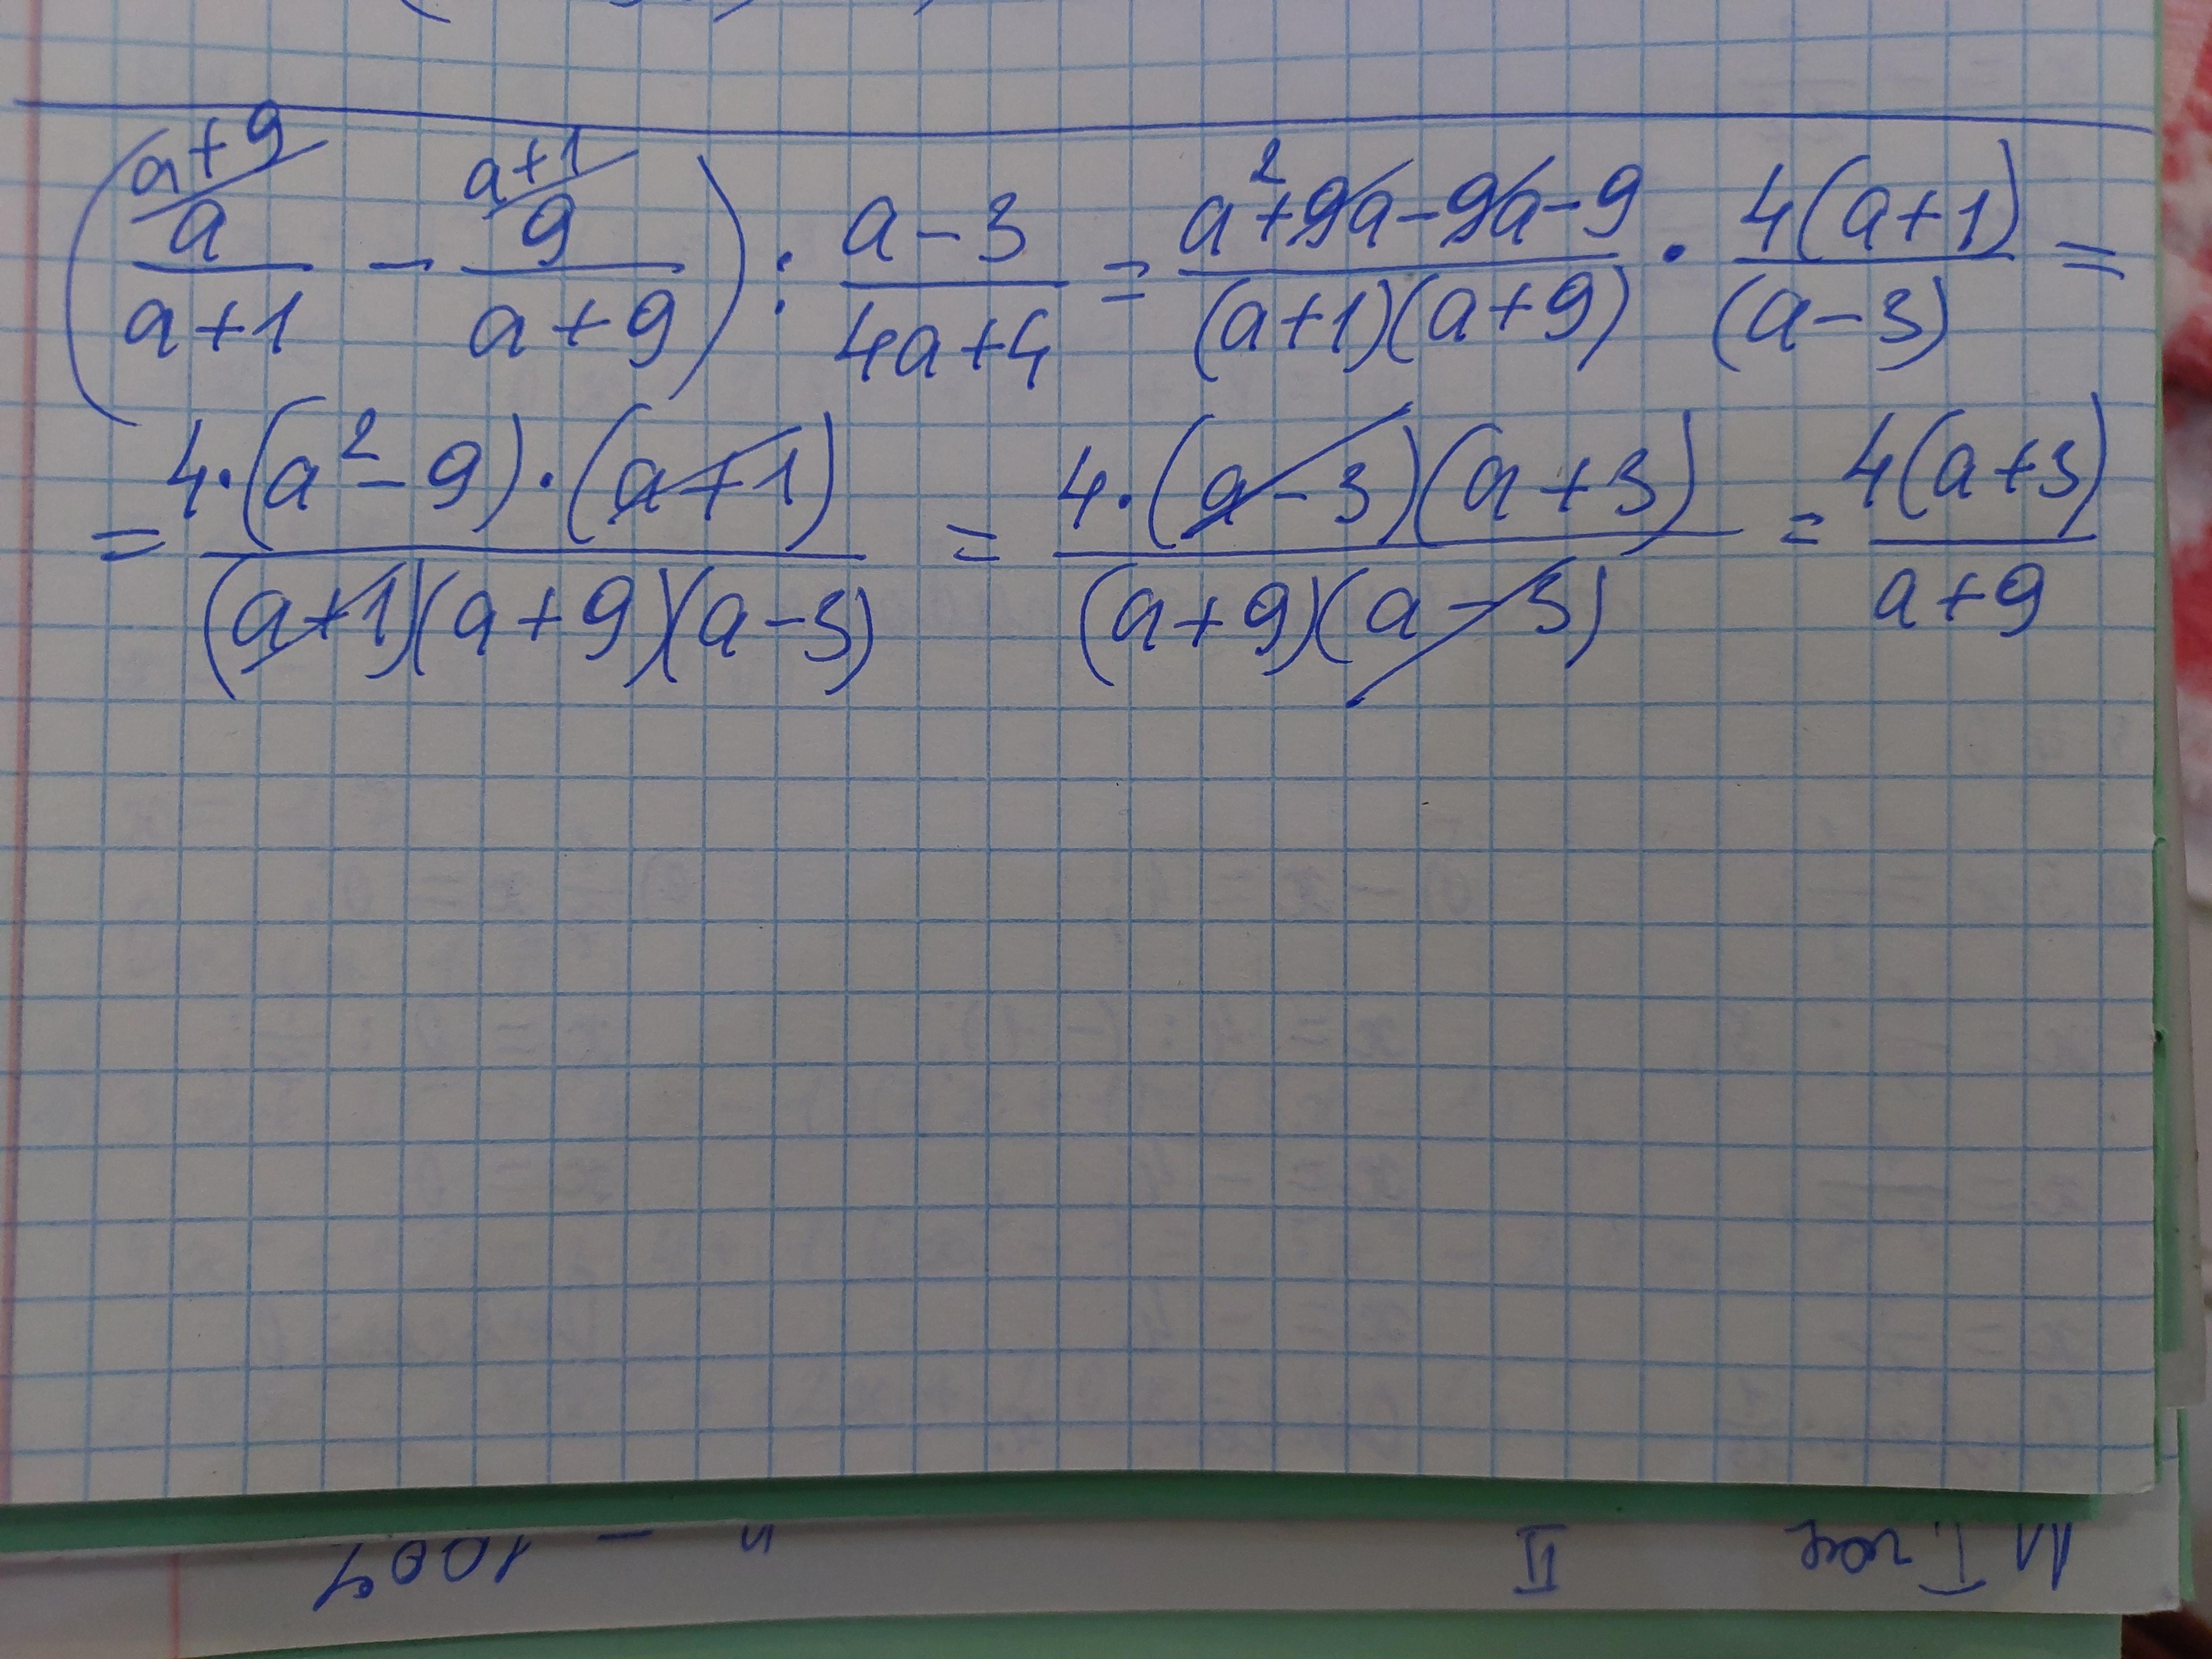 (a+9/ a/(a+1) - a+1/ 9/(a+9)) : (a-3)/(4a+4) = (a²+9a-9a-9)/((a+1)(a+9)) · 4(a+1)/(a-3) =
= 4·(a²-9)·(a+1)/((a+1)(a+9)(a-3)) = 4·(a-3)(a+3)/((a+9)(a-3)) = 4(a+3)/(a+9)
II